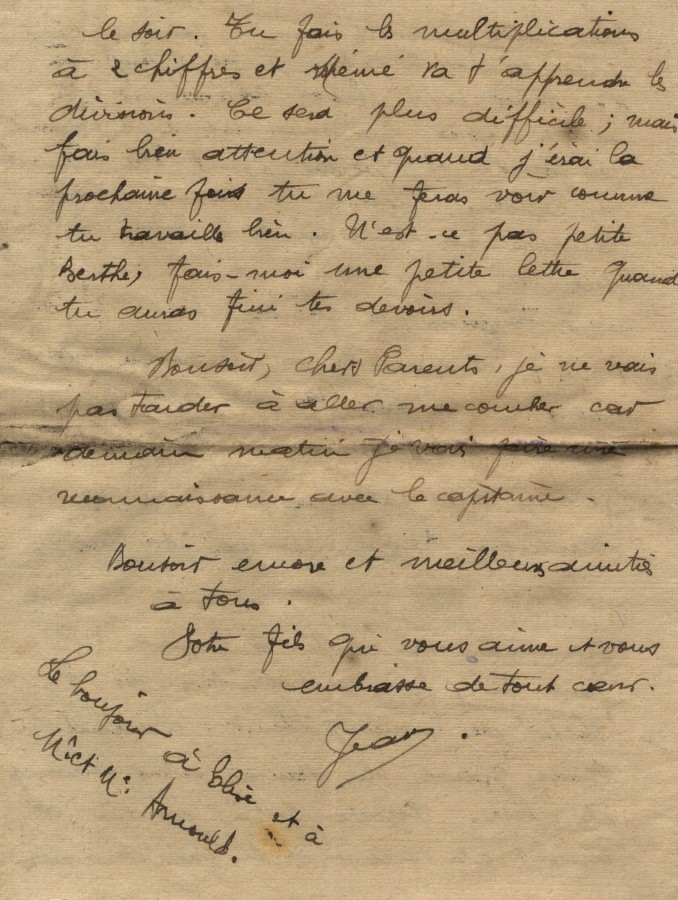 le soir. Tu fais les multiplications
à 2 chiffres et Mémé va t'apprendre les
divisions. Ce sera plus difficile ; mais
fais bien attention et quand j'irai la
prochaine fois tu me feras voir comme
tu travaille bien. N'est-ce pas petite
Berthe, fais-moi une petite lettre quand
tu auras fini tes devoirs.
Bonsoir, chers Parents, je ne vais
pas tarder à aller me coucher car
demain matin je vais faire une
reconnaissance avec le capitaine.
Bonsoir encore et meilleures amitiés
à tous.
Votre fils qui vous aime et vous
embrasse de tout cœur.
Jean.
Le bonjour à Elise et à
Mr et Me Arnould.